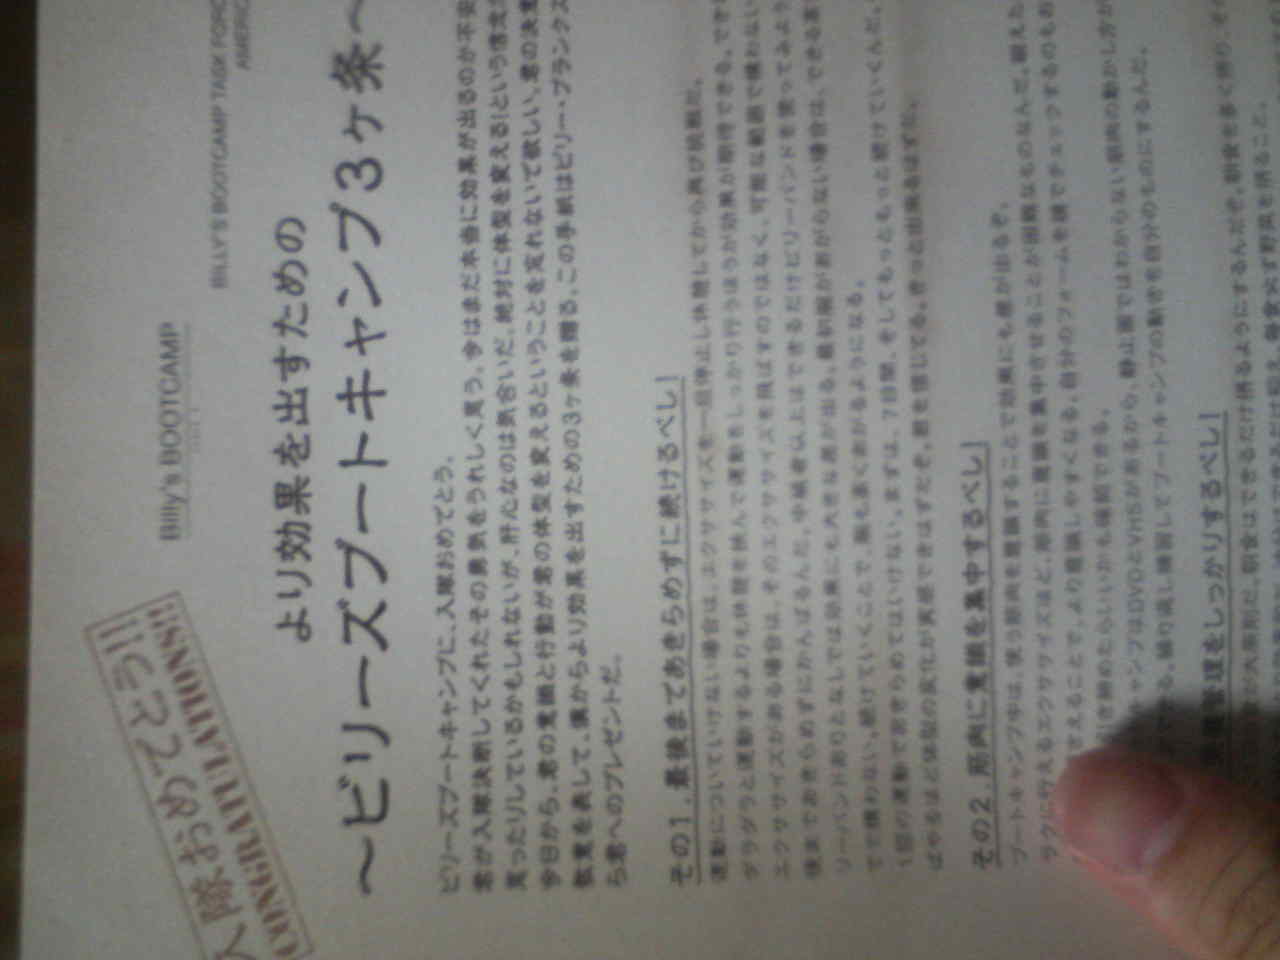 入隊おめでとう!!!
CONGRATULATIONS!!
Billy's BOOTCAMP
BILLY'S BOOTCAMP TASK FORC
AMERIC
より効果を出すための
～ビリーズブートキャンプ3ヶ条～
ビリーズブートキャンプに、入隊おめでとう。
君が入隊決断してくれたその勇気をうれしく思う。今はまだ本当に効果が出るのか不安
思ったりしているかもしれないが、肝心なのは気合いだ。絶対に体型を変える!という信念
今日から、君の意識と行動が君の体型を変えるということを忘れないで欲しい。君の決意
敬意を表して、僕からより効果を出すための3ヶ条を贈る。この手紙はビリー・ブランクス
ら君へのプレゼントだ。
その1. 最後まであきらめずに続けるべし!
運動についていけない場合は、エクササイズを一旦停止し休憩してから再び挑戦だ。
ダラダラと運動するよりも休憩を挟んで運動をしっかり行うほうが効果が期待できる。でき
エクササイズがある場合は、そのエクササイズを飛ばすのではなく、可能な範囲で構わない
後まであきらめずにがんばるんだ。中級者以上はできるだけビリーバンドを使ってみよう
リーバンドありとなしでは効果にも大きな差が出る。最初腕があがらない場合は、できる高
でで構わない。続けていくことで、腕も高くあがるようになる。
1回の運動であきらめてはいけない。まずは、7日間、そしてもっともっと続けていくんだ。
ばやるほど体型の変化が実感できるはずだぞ。君を信じてる。きっと出来るはずだ。
その2. 筋肉に意識を集中するべし!
ブートキャンプ中は、使う筋肉を意識することで効果にも差が出るぞ。
ラクに行えるエクササイズほど、筋肉に意識を集中させることが困難なものなんだ。鍛える
えることで、より意識しやすくなる。自分のフォームを鏡でチェックするのもお
を締めたらいいかも確認できる。
キャンプはDVDとVHSがあるから、静止画ではわからない筋肉の動かし方が
できる。繰り返し練習してブートキャンプの動きを自分のものにするんだ。
管理をしっかりするべし!
が大原則だ。朝食はできるだけ摂るようにするんだぞ。朝食を多く摂り、